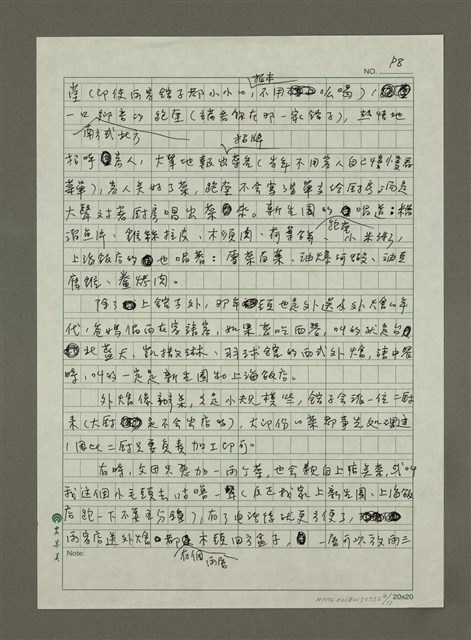 P8
NO.
堂（即使兩岸館子都小小的，不用吆喝），
根本
一口鄉音的跑堂（端看你在那一家館子），熱情地
南方或北方
招呼客人，大聲地報出菜名（當年不用客人自己慢慢看
招牌
菜單），客人點好了菜，跑堂不會寫單子給廚房，而是
大聲對著廚房唱出菜來。新生園的唱道：糟
跑堂
溜魚片、雞絲拉皮、木須肉、荷葉餅、小米粥，
上海飯店的也唱著：雪菜百葉、油爆河蝦、油豆
腐、烤肉。
除了上館子外，那年頭也是外送及外燴的年
代，爸媽偶而在家請客，如果要吃西餐，叫的就是
北藍天、凱撒琳、羽球館的西式外燴，請中餐
時，叫的一定是新生園和上海飯店。
外燴像辦桌，只是小規模些，館子會派一位二廚
來（大廚是不會出店的），大部份的菜都事先處理過
，因此二廚只要負責加工即可。
有時，父母只要加一兩个菜，也會親自上館點菜，或叫
我這個小毛頭去咕嚕一聲（反正我家上新生園、上海飯
店跑一下不要五分鐘），有了電話後就更方便了，
兩家店送外燴都木頭的盒子，一層可以放兩三
有個
兩層
Note:
20x20